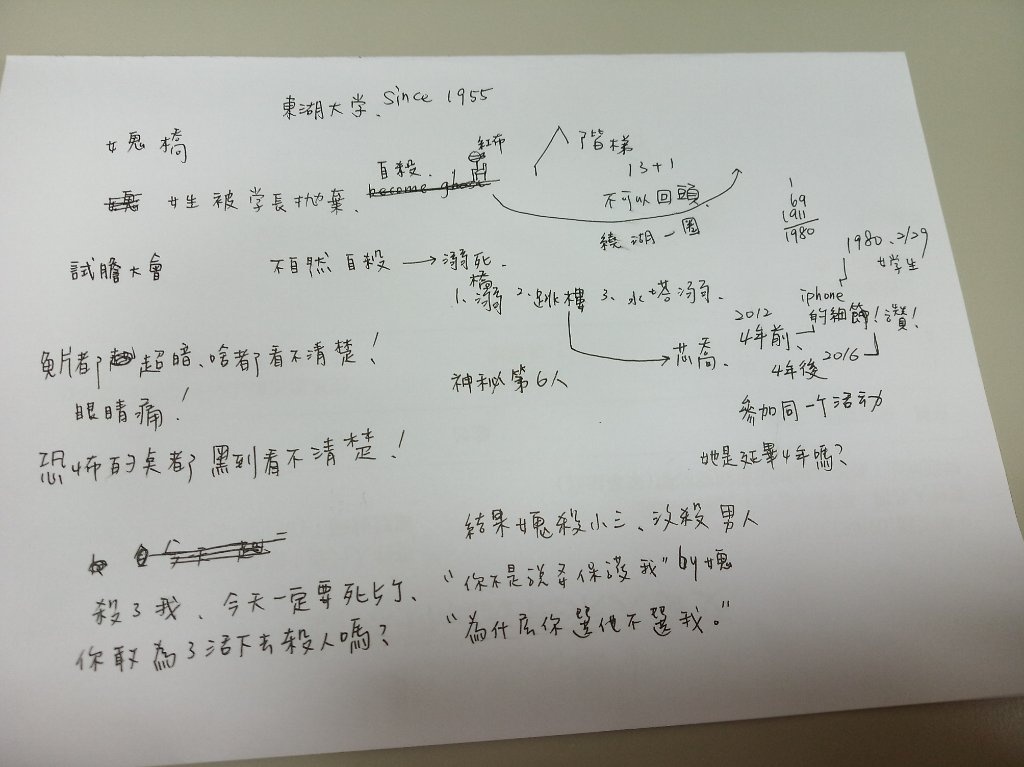 東湖大学、since 1955
女鬼橋
紅布
自殺、
become ghost
女生被学長抛棄、
階梯
13+1
不可以回頭、
繞湖一圈
1
69
1911
1980
1980、2/29
女学生
試膽大會
不自然自殺 → 溺死、
1、橋溺 2、跳樓 3、水塔溺、
iphone
的細節！讚！
2012
4年前、
4年後 2016
芯喬、
神秘第6人
參加同一个活动
她是死畢4年嗎？
鬼片都超暗、啥都看不清楚！
眼睛痛！
恐怖的臭都黑到看不清楚！
結果女鬼殺小三、沒殺男人
"你不是說要保護我" by女鬼
"為什麼你選他不選我。"
殺了我、今天一定要死片、
你敢為了活下去殺人嗎？